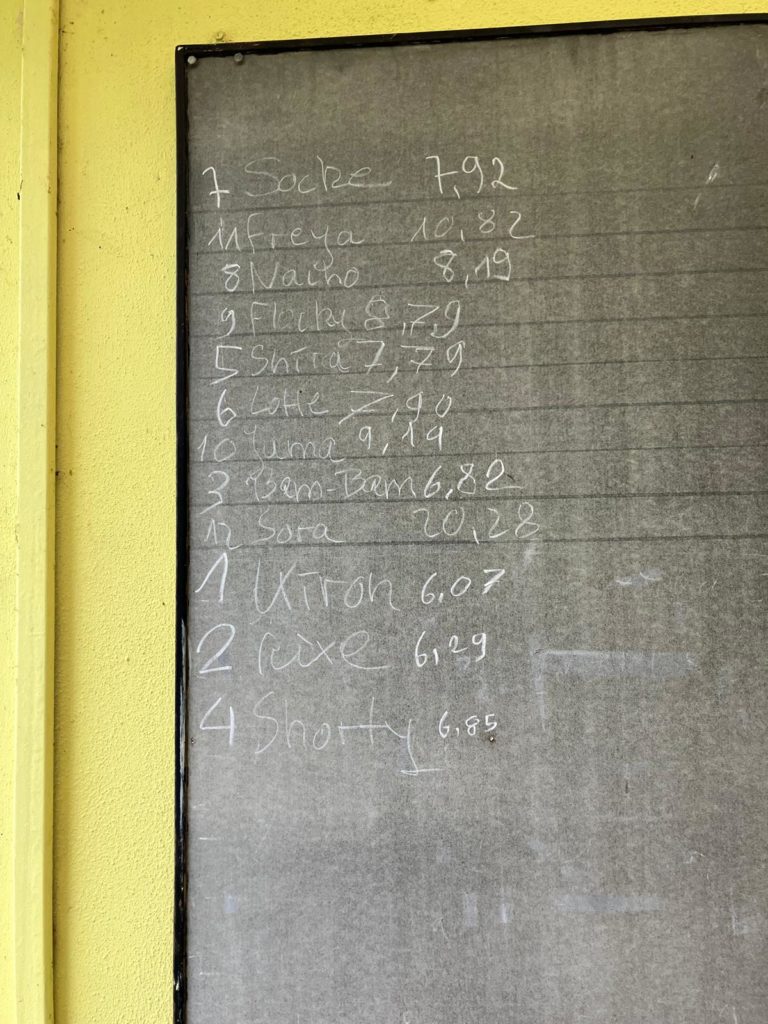 7 Socke 7,92
11 Freya 10,82
8 Nacho 8,19
9 Flocke 8,79
5 Shira 7,79
6 Lotte 7,90
10 Yuma 9,19
3 Bam-Bam 6,82
12 Sora 20,28
1 6,07
2 6,29
4 Shorty 6,85